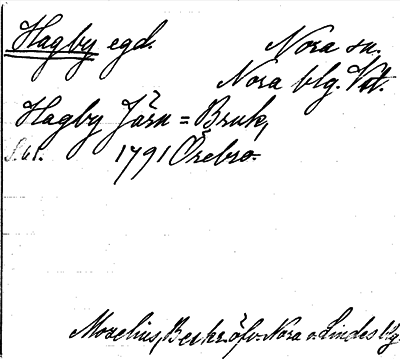 Hagby egd. Nora sn.
Nora blg. Vstl.
Hagby Järn = Bruk,
S. 61. 1791 Örebro.
Morelius, Beskr. öfv. Nora o. Lindes blg.